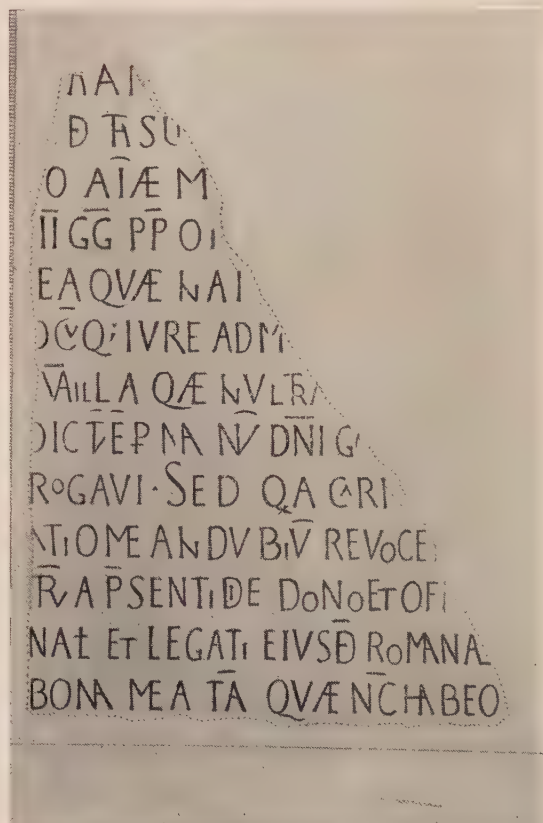 NAI
Đ TħSU
O AĪÆ M
II GG PP OI
EA QVÆ NAI
OC̄VQ; IVRE ADM
VAILLA QÆ NVLTRA
DICTĒEP̄ NA NV̄ DN̄I G
ROGAVI · SED QA CARI
ATIO MEA NDVBIV̄ REVOCE
TR̄A P̄SENTI DE DONO ET OFI
NAŁ ET LEGATI EIVSĐ ROMANA
BONA MEA TĀ QVÆ NC̄ HABEO